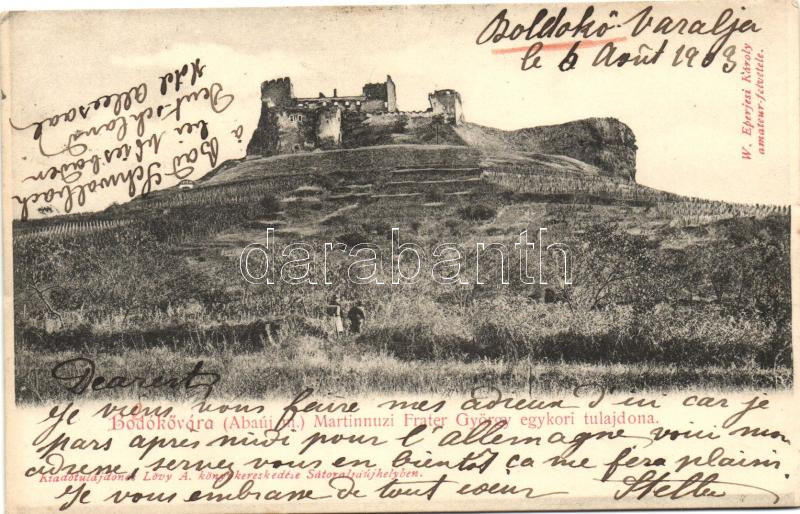 Boldokő Varalja
le 6 Août 1903
W. Eperjesi Károly
amateur-felvétele.
Hotel Alleesaal
Deutschland
bei Wiesbaden
à Bad Schwalbach
darabanth.com
Dearest
Je viens vous faire mes adieux d'ici car je
Bodókővára (Abaúj m.) Martinnuzi Frater György egykori tulajdona.
pars apres midi pour l'allemagne voici mon
adresse, servez vous en bientôt ça me fera plaisir
Kiadótulajdonos Lövy A. könyvkereskedése Sátoraljaújhelyben.
Je vous embrasse de tout coeur Stella